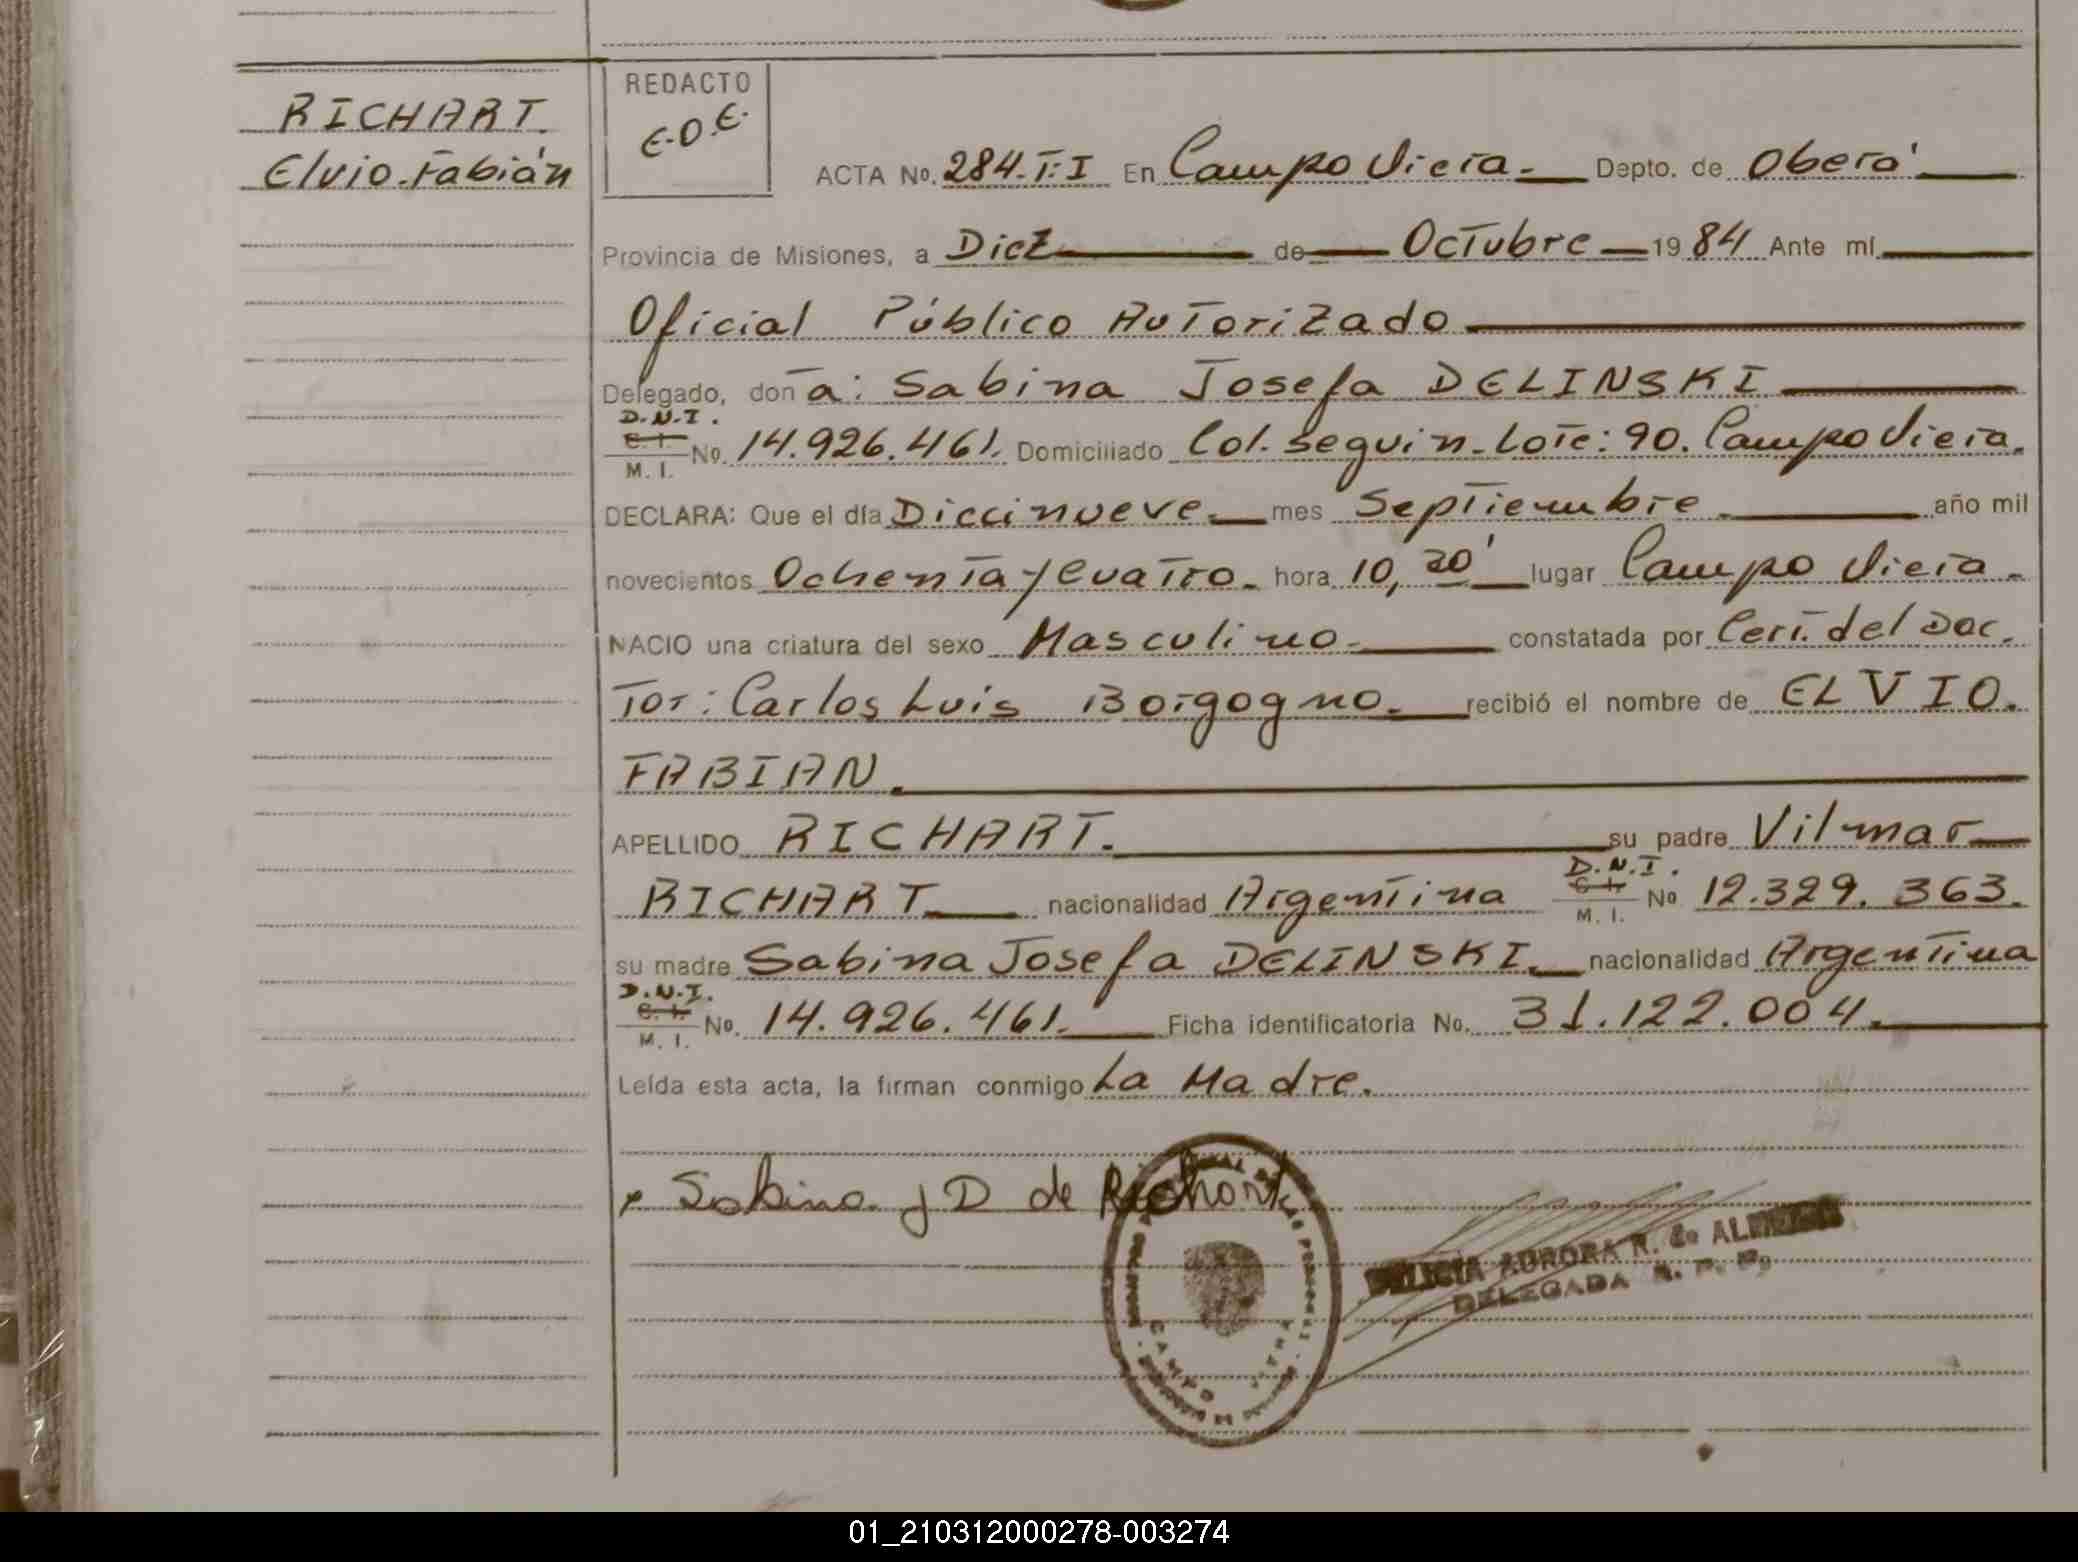 RICHART.
Elvio. Fabián
REDACTO
E.O.E.
ACTA No. 284. T:I En Campo Viera. Depto. de Oberá
Provincia de Misiones, a Diez de Octubre 1984 Ante mí
Oficial Público Autorizado
Delegado, don a: Sabina Josefa DELINSKI
D.N.I.
C. I.
M. I.
No. 14.926.461. Domiciliado Col. Seguin. Lote: 90. Campo Viera.
DECLARA: Que el día Diecinueve mes Septiembre. año mil
novecientos Ochenta y Cuatro. hora 10,20' lugar Campo Viera.
NACIO una criatura del sexo Masculino. constatada por Cert. del Doc.
Tor: Carlos Luis Borgogno. recibió el nombre de ELVIO.
FABIAN.
APELLIDO RICHART. su padre Vilmar
RICHART nacionalidad Argentina D.N.I. C. I. M. I. No 12.329.363.
su madre Sabina Josefa DELINSKI. nacionalidad Argentina
D.N.I.
C. I.
M. I.
No. 14.926.461. Ficha identificatoria No. 31.122.004.
Leída esta acta, la firman conmigo La Madre.
x Sabina J D de Richart
CAMPO VIERA
DELICIA AURORA R. de
DELEGADA R. P. P.
01_210312000278-003274